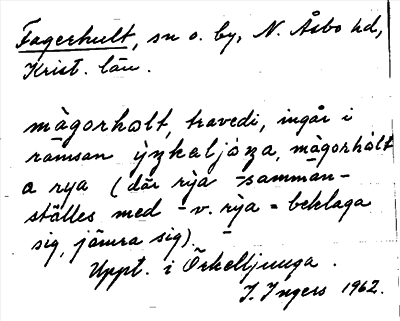 Fagerhult, sn o. by, N. Åsbo hd,
Krist. län.
màgorholt, travedi, ingår i
ramsan ỳzkaljóza, màgorhólt
a rya (där rỳa - samman-
ställes med - v. rỳa = beklaga
sig, jämra sig).
Uppt. i Örkelljunga.
I. Ingers 1962.